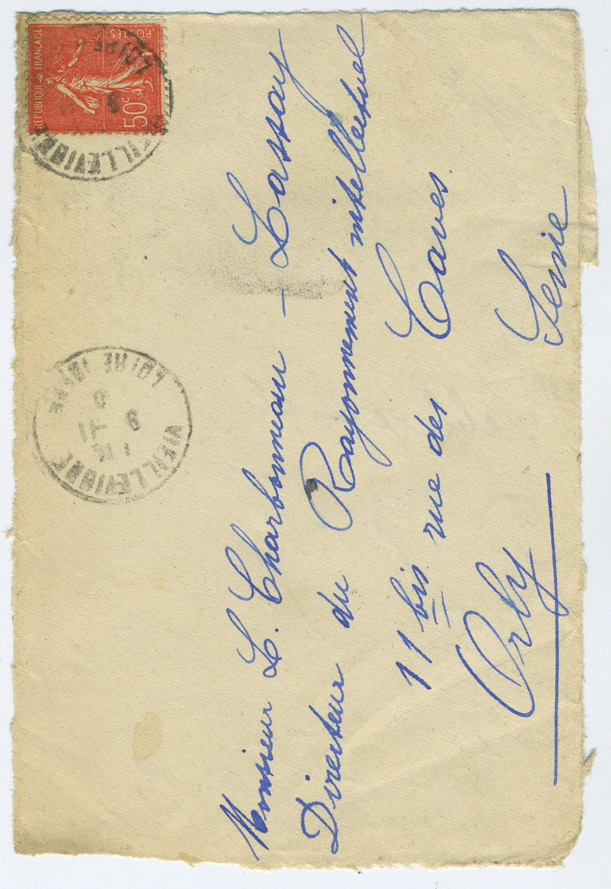 RÉPUBLIQUE FRANÇAISE
POSTES
50c
VIEILLEVIGNE
LOIRE INFRE
Monsieur L. Charbonneau - Lassay
Directeur du Rayonnement intellectuel
11 bis rue des Caves
Orly Seine